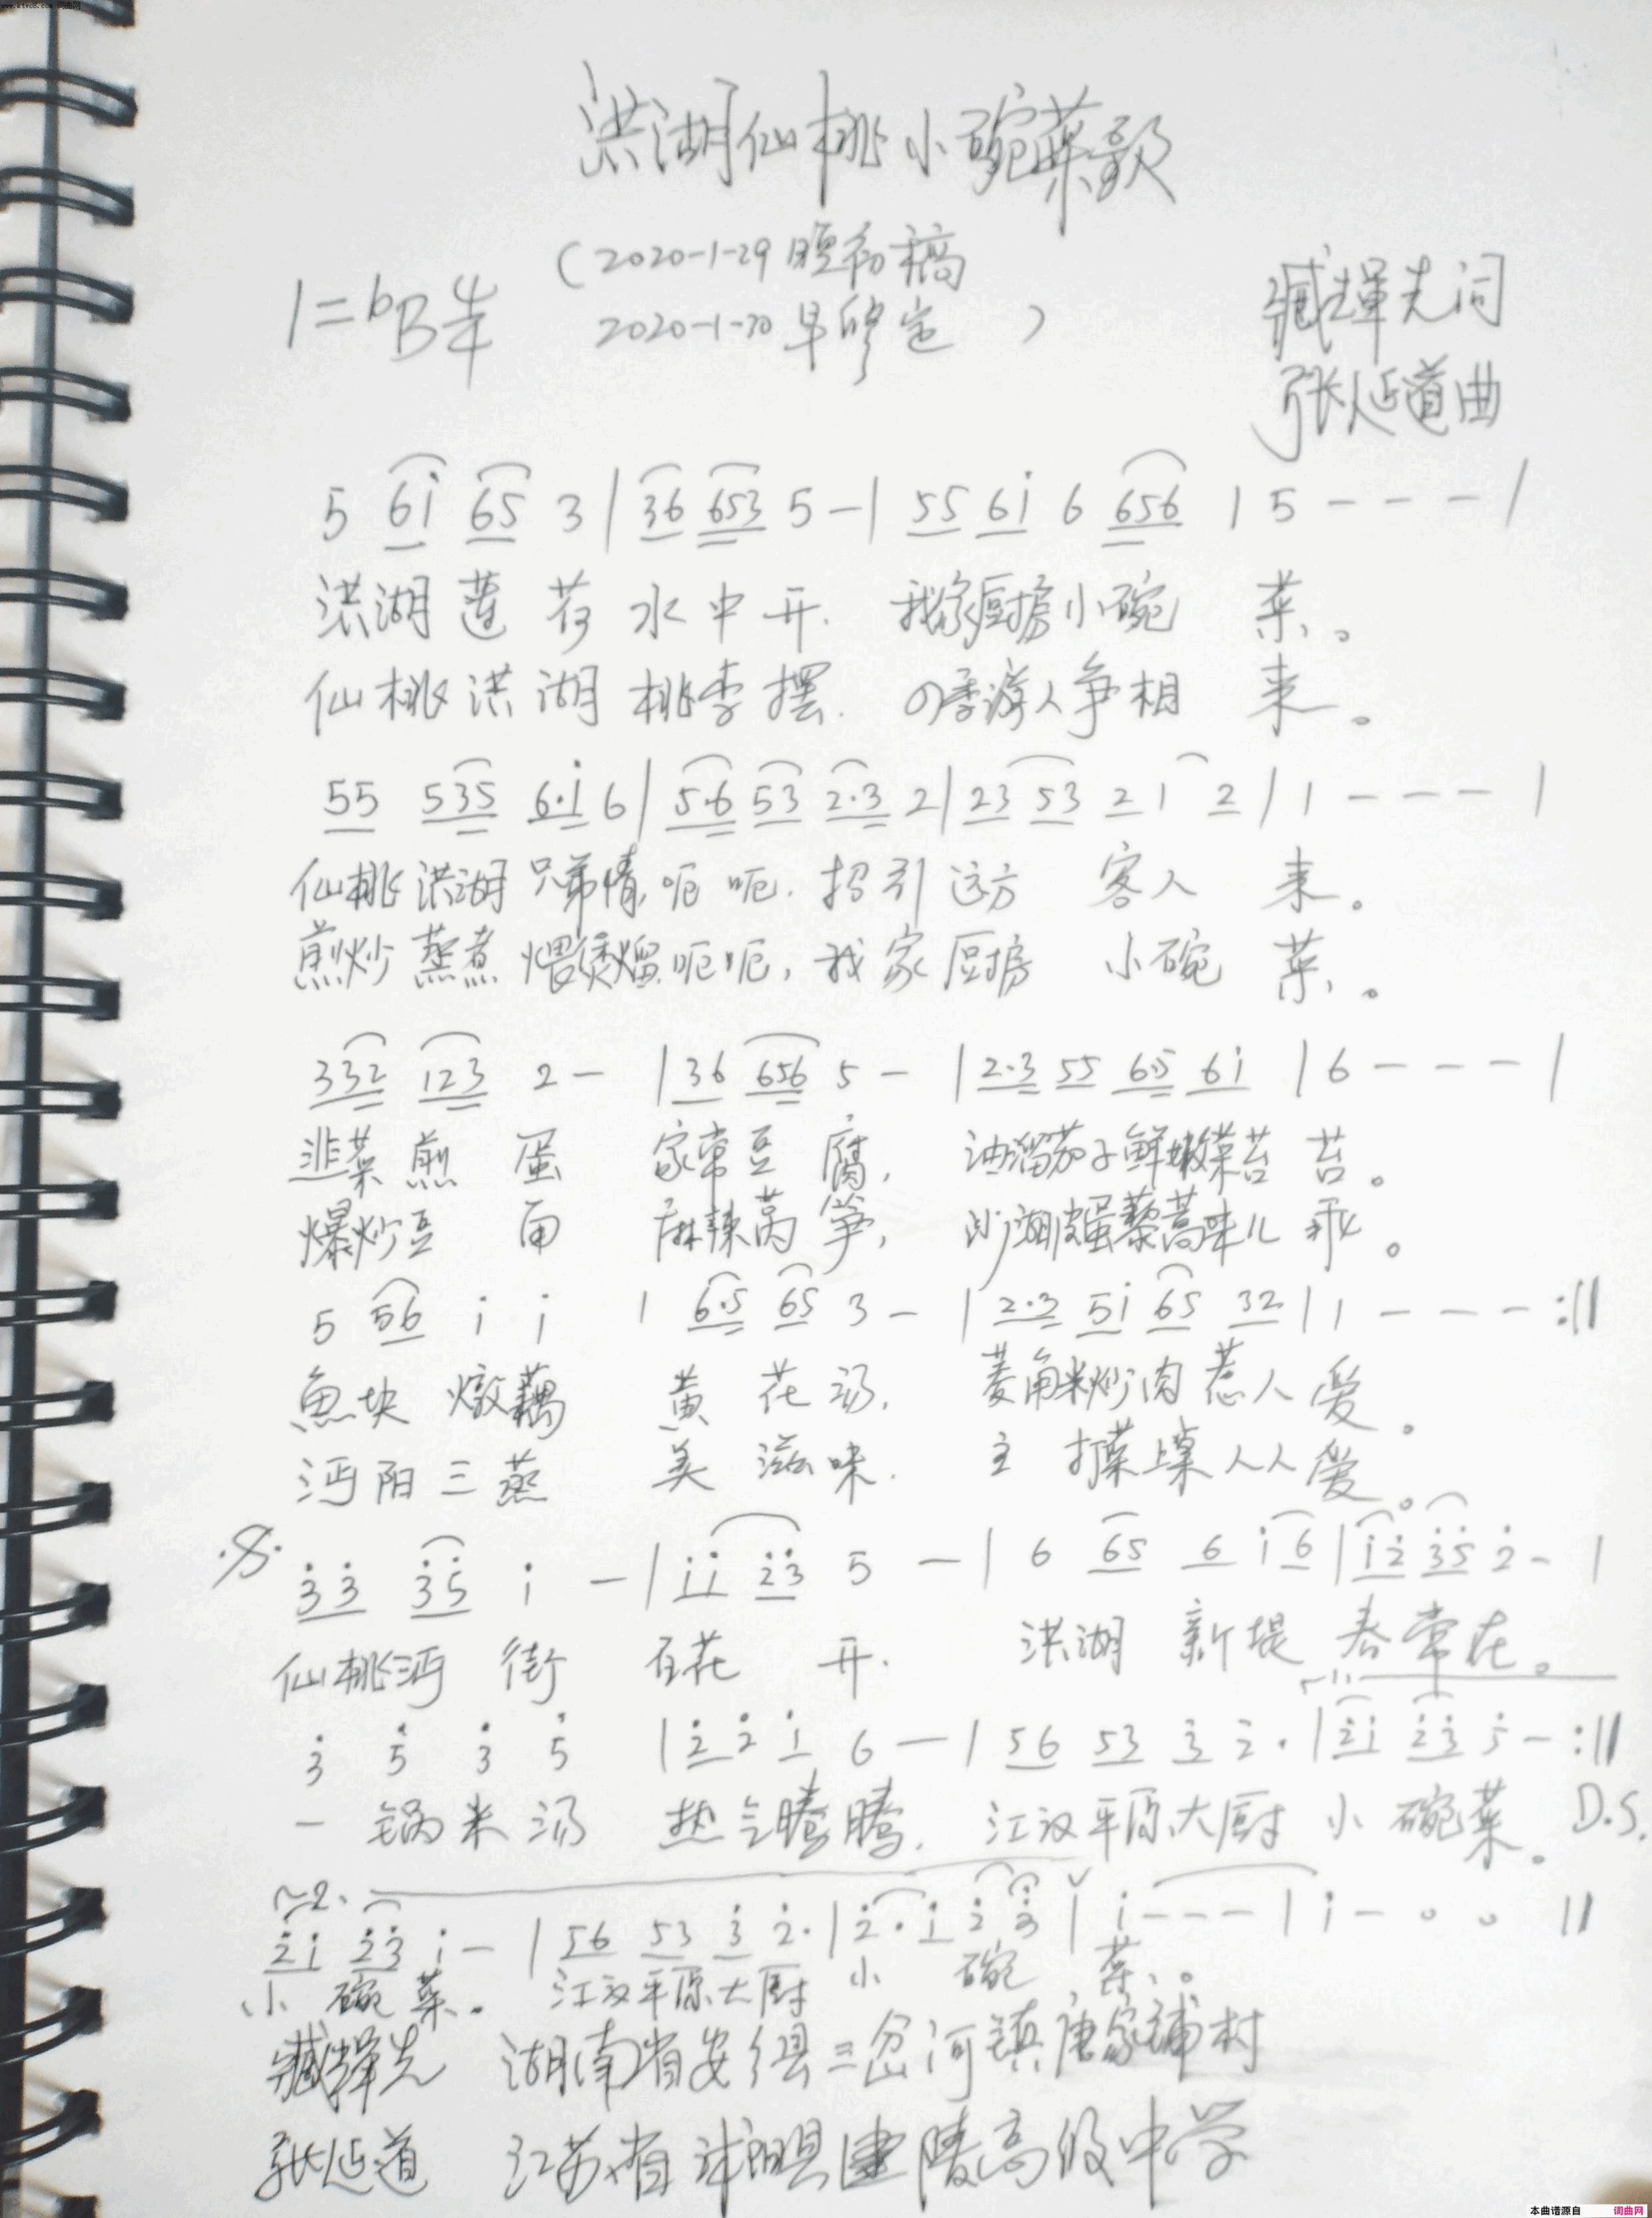 洪湖仙桃小碗菜歌
(2020-1-29晚初稿
1=ᵇB 4/4 2020-1-30早修定)
臧辉先词
张延道曲
5 6i 65 3 | 36 653 5 - | 55 6i 6 656 | 5 - - - |
洪湖莲花水中开. 我家厨房小碗菜。
仙桃洪湖桃李摆. 四季游人争相来。
55 535 6·i 6 | 5·6 53 2·3 2 | 23 53 2 1 2 | 1 - - - |
仙桃洪湖兄弟情,呃呃. 招引远方客人来。
煎炒蒸煮煨煲熘.呃呃, 我家厨房小碗菜。
332 123 2 - | 36 656 5 - | 2·3 55 6·5 6i | 6 - - - |
韭菜煎蛋 家常豆腐, 油溜茄子鲜嫩菜苔苔。
爆炒豆角 麻辣莴笋, 沙湖皮蛋藜蒿味儿乖。
5 56 i i | 6·5 65 3 - | 2·3 5i 65 32 | 1 - - - :||
鱼块燉藕 黄花汤, 菱角米炒肉惹人爱。
沔阳三蒸 美滋味. 主打菜上桌人人爱。
𝄋 3̇3̇ 3̇5̇ i - | ii 2̇3̇ 5 - | 6 65 6 i 6 | i2̇ 3̇5̇ 2̇ - |
仙桃沔街 百花开. 洪湖新堤春常在。
3̇ 5̇ 3̇ 5̇ | 2̇ 2̇ i 6 - | 56 53 3̇ 2̇· | 2̇i 2̇3̇ 5̇ - :||
一锅米汤 热气腾腾. 江汉平原大厨小碗菜。 D.S.
2.
2̇i 2̇3̇ i - | 56 53 3̇ 2̇· | 2̇· i 2̇ 3̇ ∨ | i - - - | i - 0 0 ||
小碗菜。 江汉平原大厨 小碗菜。
臧辉先 湖南省安乡县三岔河镇唐家铺村
张延道 江苏省沭阳县建陵高级中学
本曲谱源自 词曲网